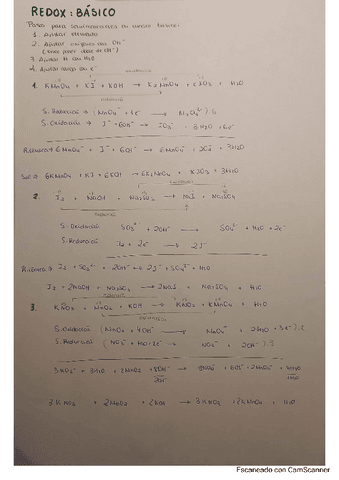 REDOX: BÁSICO
Pasos para semireaccions en medio básico:
1. Ajustar elemento
2. Ajustar oxígeno con OH⁻
3. Ajustar H con H₂O
4. Ajustar carga con e⁻
1. KMnO₄ + KI + KOH → K₂MnO₄ + KIO₃ + H₂O
S. Reducció → (MnO₄⁻ + 1e⁻ → MnO₄²⁻)·6
S. Oxidació → I⁻ + 6OH⁻ → IO₃⁻ + 3H₂O + 6e⁻
6MnO₄⁻ + I⁻ + 6OH⁻ → 6MnO₄²⁻ + IO₃⁻ + 3H₂O
6KMnO₄ + KI + 6KOH → 6K₂MnO₄ + KIO₃ + 3H₂O
2. I₂ + NaOH + Na₂SO₃ → NaI + Na₂SO₄
S. Oxidació SO₃²⁻ + 2OH⁻ → SO₄²⁻ + H₂O + 2e⁻
S. Reducció I₂ + 2e⁻ → 2I⁻
I₂ + SO₃²⁻ + 2OH⁻ → 2I⁻ + SO₄²⁻ + H₂O
I₂ + 2NaOH + Na₂SO₃ → 2NaI + Na₂SO₄ + H₂O
3. KNO₃ + MnO₂ + KOH → KNO₂ + KMnO₄ + H₂O
S. Oxidació (MnO₂ + 4OH⁻ → MnO₄⁻ + 2H₂O + 3e⁻)·2
S. Reducció (NO₃⁻ + H₂O + 2e⁻ → NO₂⁻ + 2OH⁻)·3
3NO₃⁻ + 3H₂O + 2MnO₂ + 8OH⁻ → 3NO₂⁻ + 6OH⁻ + 2MnO₄⁻ + 4H₂O
3KNO₃ + 2MnO₂ + 2KOH → 3KNO₂ + 2KMnO₄ + H₂O
Escaneado con CamScanner